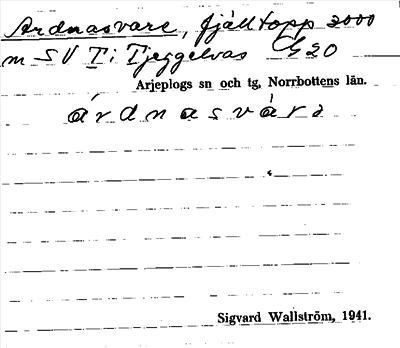 Ardnasvare, fjälltopp 2000
m SV T i Tjeggelvas G30
Arjeplogs sn och tg, Norrbottens län.
árdnasvára
Sigvard Wallström, 1941.